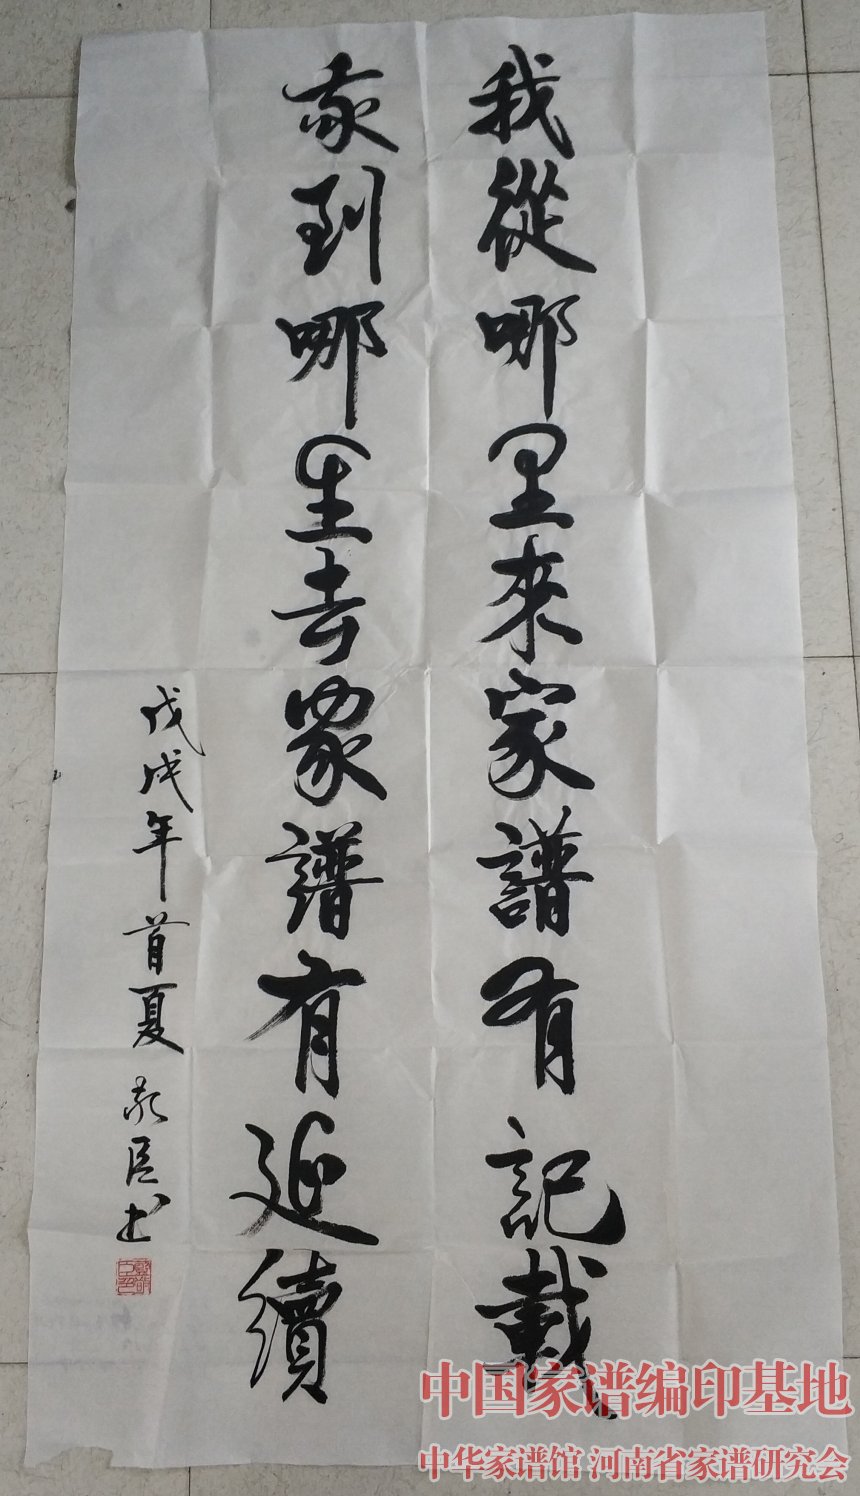 我從哪里來家譜有記載
我到哪里去家譜有延續
戊戌年首夏 敬臣书
中国家谱编印基地
中华家谱馆 河南省家谱研究会